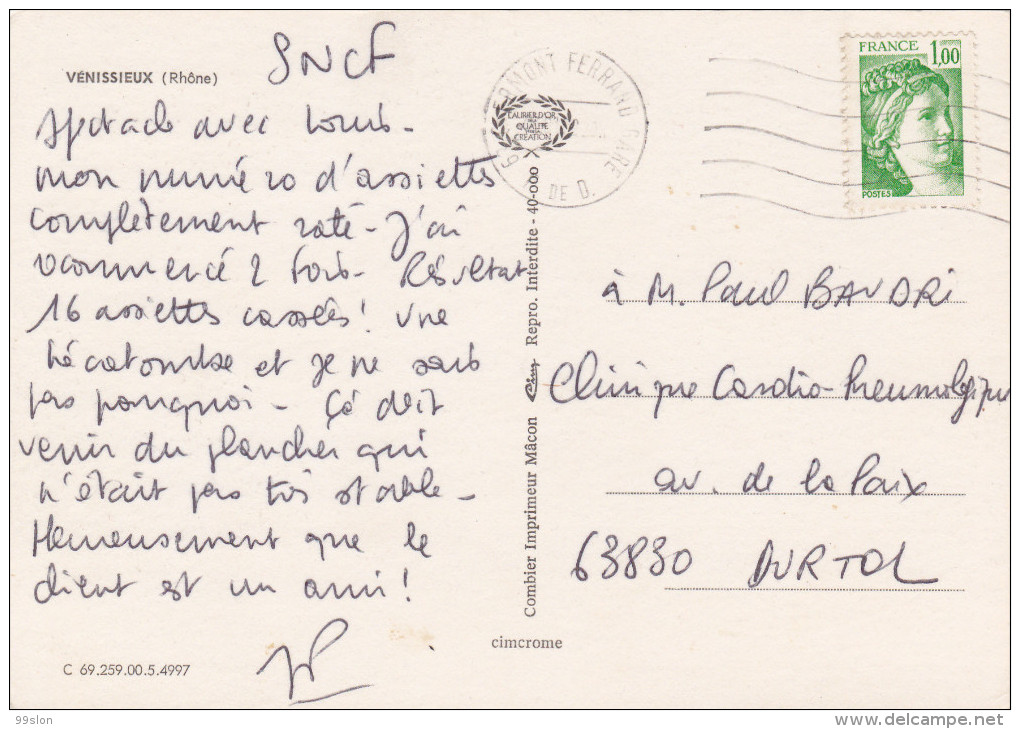 VÉNISSIEUX (Rhône)
SNCF
Spectacle avec Louis -
mon numéro d'assiettes
complètement raté - J'ai
recommencé 2 fois - Résultat
16 assiettes cassées ! Une
hécatombe et je ne sais
pas pourquoi - Ça doit
venir du plancher qui
n'était pas très stable -
Heureusement que le
client est un ami !
JP
C 69.259.00.5.4997
cimcrome
Combier Imprimeur Mâcon Cim Repro. Interdite - 40-000
LAURIER D'OR
DE LA
QUALITÉ
CRÉATION
CLERMONT FERRAND GARE
P. DE D.
FRANCE 1,00
POSTES
à M. Paul BAUDRI
Clinique Cardio-Pneumologique
av. de la Paix
63830 DURTOL
99slon
www.delcampe.net